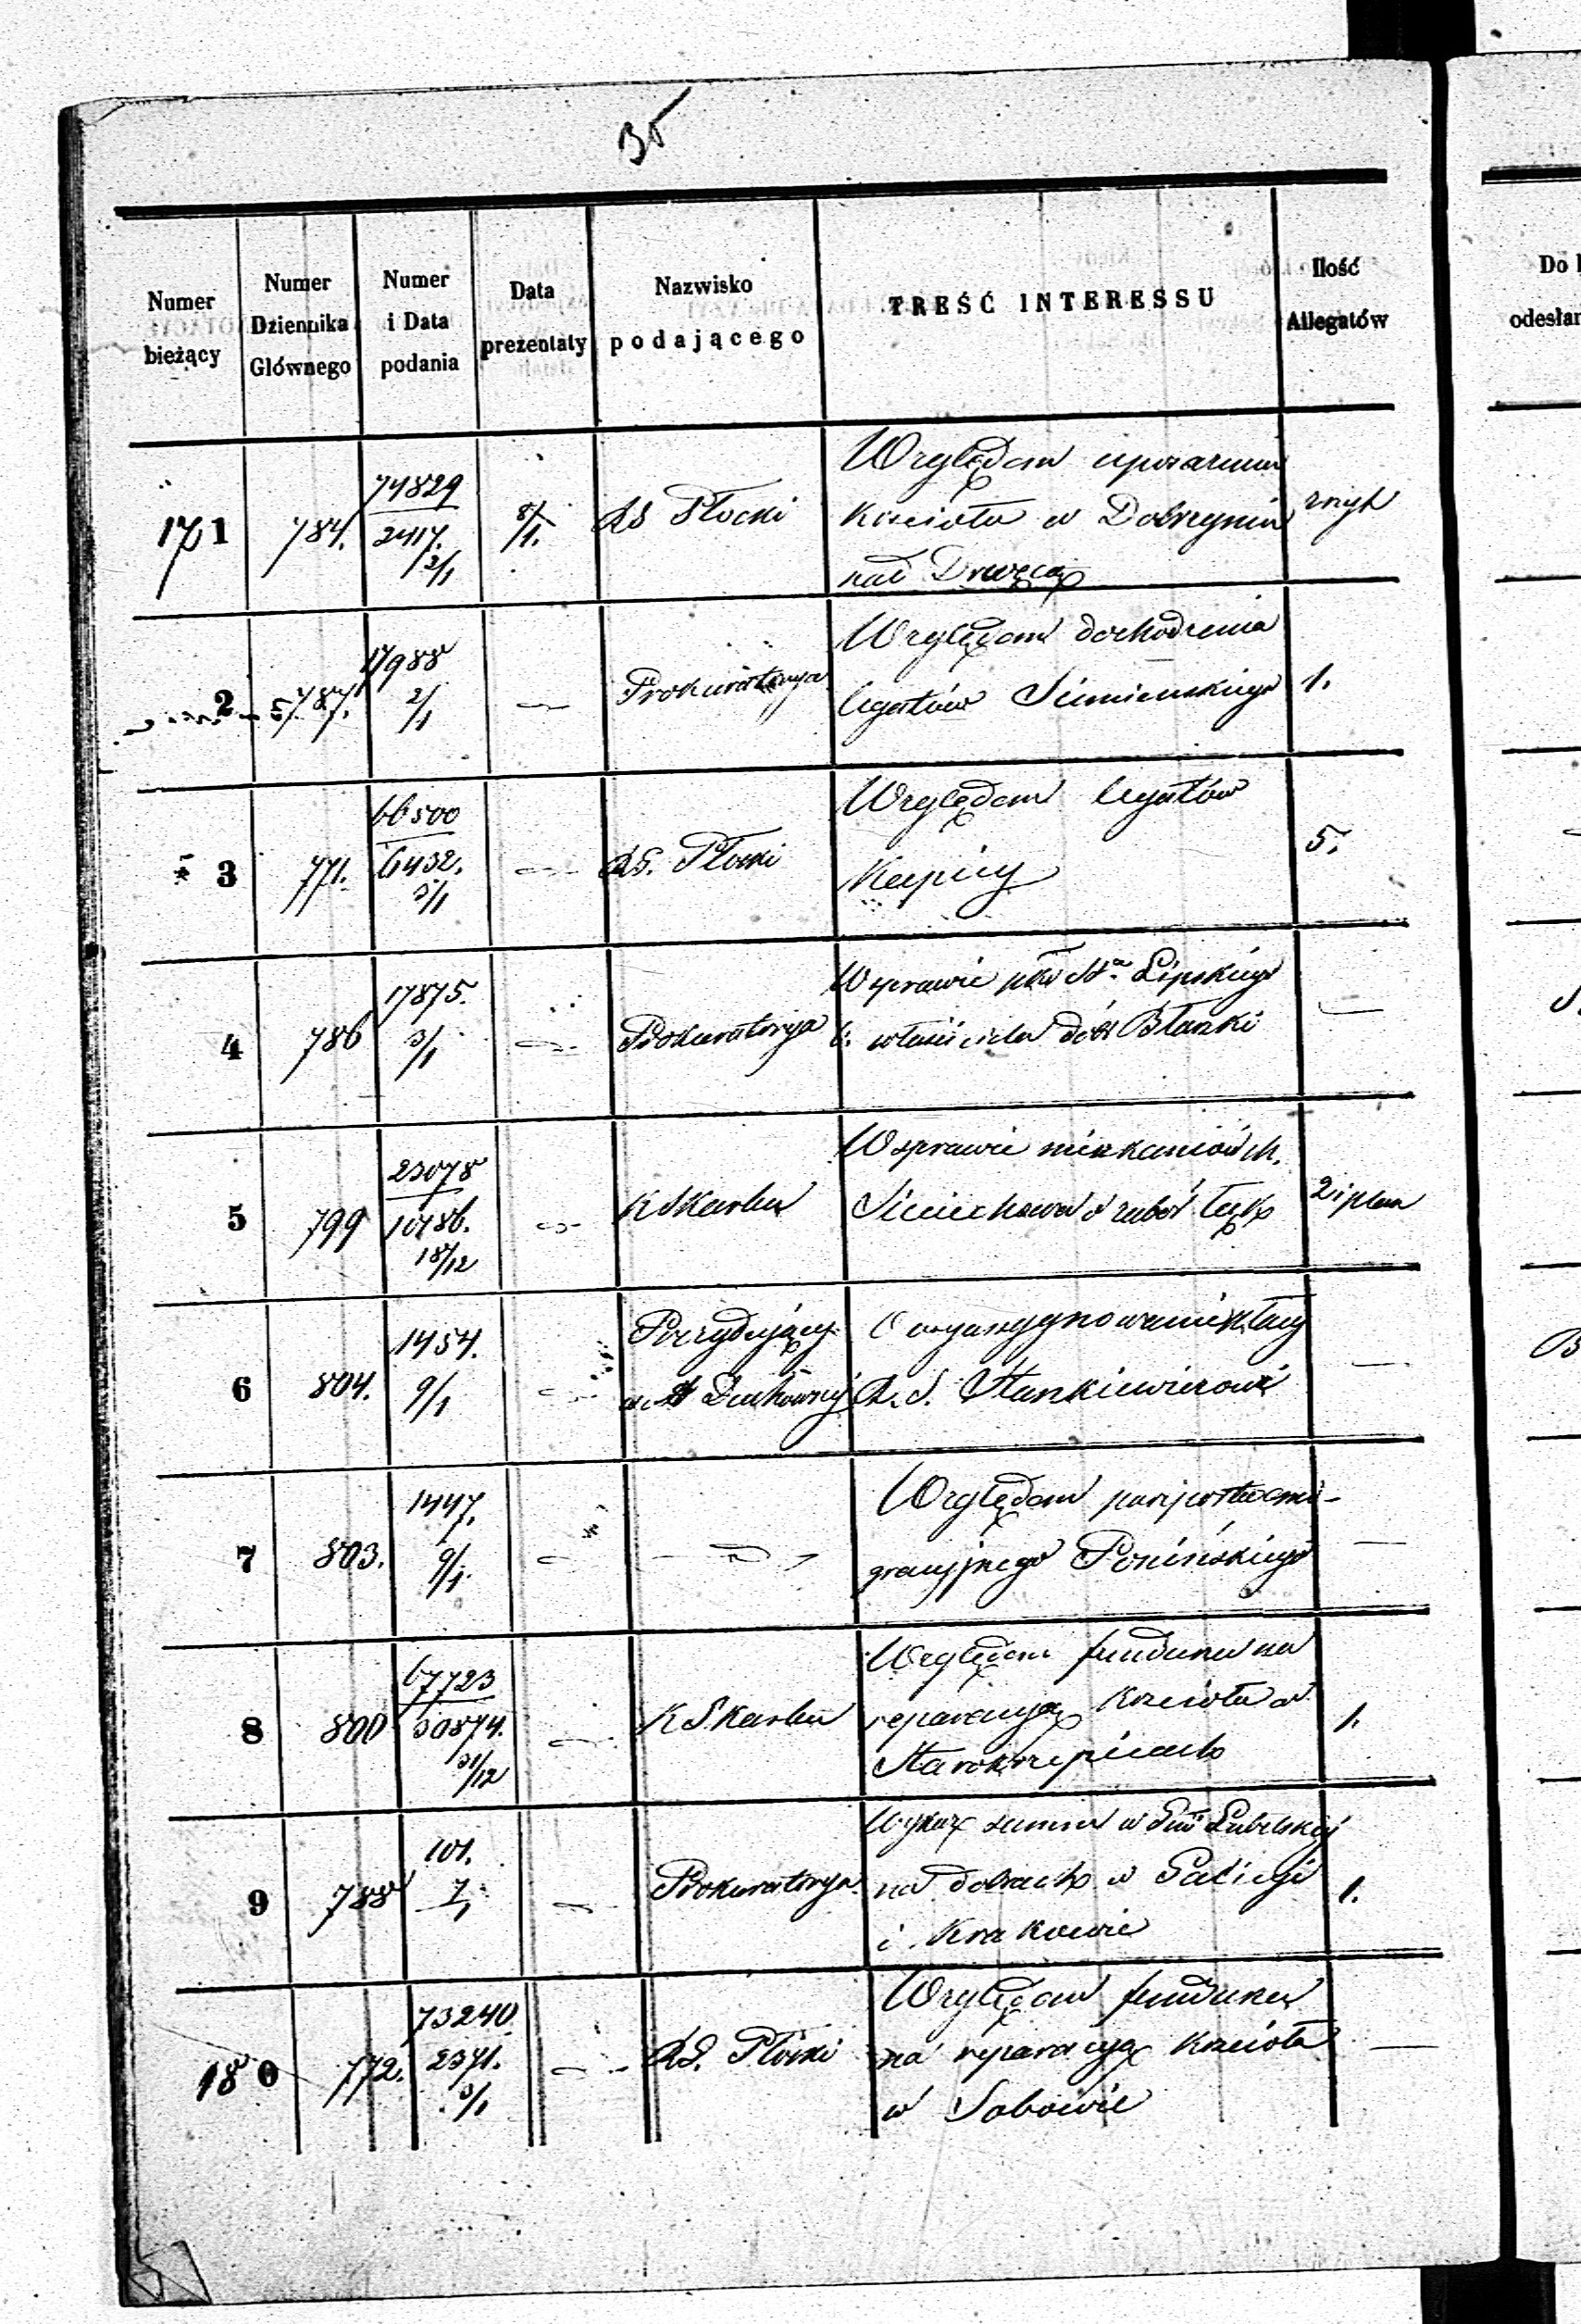 35
Numer bieżący
Numer Dziennika Głównego
Numer i Data podania
Data prezentaty
Nazwisko podającego
TREŚĆ INTERESSU
Ilość Allegatów
Do
odesłan
171 784. 74829 2417. 2/1 8/1. RG Płocki
Względem uposażenia
Kościoła w Dobrzyniu
nad Drwęcą
2 787. 17988 2/1 — Prokuratorya 1.
Względem dochodzenia
legatów
3 771. 66500 6432. 3/1 — RG. Płocki 5.
Względem legatów
Kępicy
4 786 17875. 3/1 — Prokuratorya —
W sprawie Lipskiego
b. właściciela dóbr Błaszki
5 799 23078 10786. 18/12 — K Skarbu 2 i plan
W sprawie mieszkańców M.
Sieciechowa o zabór łąk
6 804. 1454. 9/1 — Prezydujący —
O wyasygnowanie płacy
R. S. Stankiewiczowi
7 803. 1447. 9/1 — — —
Względem paszportu emi-
gracyjnego Ponińskiego
8 800 67723 30874. 31/12 — K Skarbu 1.
Względem funduszu na
reparacyą Kościoła w
Starokrzepicach
9 788 101. 7/1 — Prokuratorya 1.
Wykaz summ w Lubelskiej
na dobrach w Galicyi
i Krakowie
180 772. 73240 2371. 3/1 — RG. Płocki —
Względem funduszu
na reparacyą Kościoła
w Sobowie